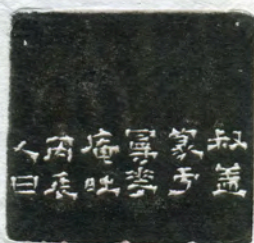 叔蓋
篆于
庵時
丙辰
人日